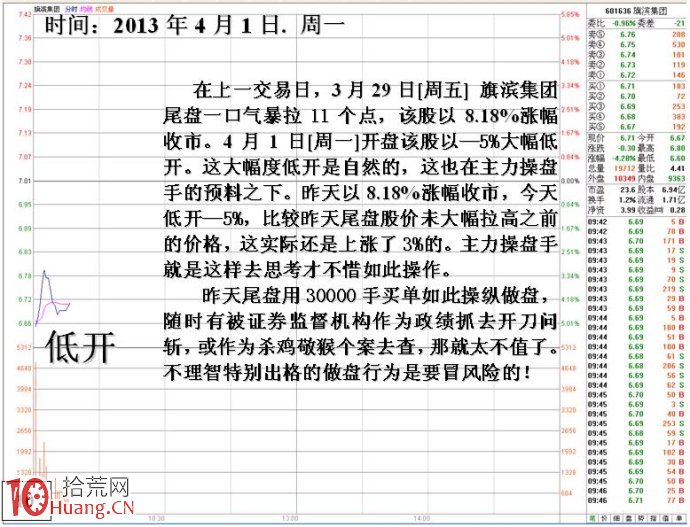 旗滨集团 分时 均线 成交量
时间：2013 年 4 月 1 日. 周一
在上一交易日，3 月 29 日[周五] 旗滨集团
尾盘一口气暴拉 11 个点，该股以 8.18%涨幅
收市。4 月 1 日[周一]开盘该股以—5%大幅低
开。这大幅度低开是自然的，这也在主力操盘
手的预料之下。昨天以 8.18%涨幅收市，今天
低开—5%，比较昨天尾盘股价未大幅拉高之前
的价格，这实际还是上涨了 3%的。主力操盘手
就是这样去思考才不惜如此操作。
昨天尾盘用 30000 手买单如此操纵做盘，
随时有被证券监督机构作为政绩抓去开刀问
斩，或作为杀鸡敬猴个案去查，那就太不值了。
不理智特别出格的做盘行为是要冒风险的！
低开
7.42
7.35
7.27
7.20
7.13
7.01
6.95
6.89
6.83
6.78
6.72
6.66
5312
4648
3984
3320
2656
1992
1328
5.85%
5.01%
4.18%
3.34%
0.00%
0.84%
1.67%
2.51%
3.34%
4.18%
5.01%
5312
4648
3984
3320
2656
1992
1328
664
10:30
13:00
14:00
拾荒网
10Huang.CN
601636 旗滨集团
委比 -0.96% 委差 -21
卖⑤ 6.76 208
卖④ 6.75 530
卖③ 6.74 101
卖② 6.73 119
卖① 6.72 146
买① 6.71 183
买② 6.70 72
买③ 6.69 253
买④ 6.68 383
买⑤ 6.67 192
现价 6.71 今开 6.67
涨跌 -0.30 最高 6.80
涨幅 -4.28% 最低 6.60
总量 19712 量比 4.41
外盘 10349 内盘 9363
市盈 23.6 股本 6.94亿
换手 1.2% 流通 1.71亿
净资 3.99 收益㈣ 0.28
09:42 6.69 5 B
09:42 6.69 78 B
09:43 6.70 171 B
09:43 6.69 17 S
09:43 6.69 19 S
09:43 6.69 9 S
09:43 6.69 70 S
09:43 6.69 219 S
09:43 6.69 29 B
09:43 6.69 59 B
09:44 6.69 5 B
09:44 6.69 180 B
09:44 6.69 51 B
09:44 6.68 61 S
09:44 6.68 206 S
09:44 6.69 56 S
09:44 6.69 62 S
09:45 6.70 50 B
09:45 6.69 3 S
09:45 6.70 40 B
09:45 6.69 253 S
09:45 6.68 59 S
09:45 6.69 17 B
09:45 6.69 102 B
09:45 6.69 30 B
09:45 6.69 54 B
09:46 6.70 50 B
09:46 6.70 25 B
09:46 6.71 77 B
笔 价 细 盘 势 指 值 单